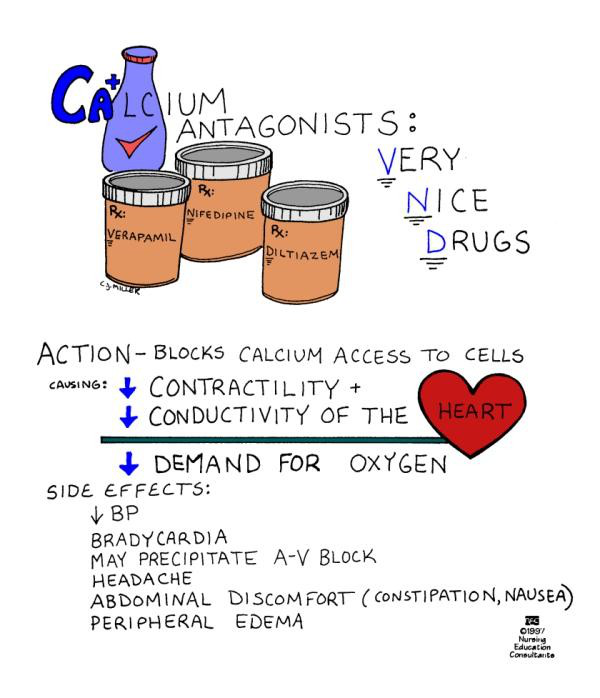 CA+LCIUM
ANTAGONISTS:
VERY
NICE
DRUGS
Rx:
VERAPAMIL
Rx:
NIFEDIPINE
Rx:
DILTIAZEM
C.J. MILLER
ACTION – BLOCKS CALCIUM ACCESS TO CELLS
CAUSING: ↓ CONTRACTILITY +
↓ CONDUCTIVITY OF THE HEART
↓ DEMAND FOR OXYGEN
SIDE EFFECTS:
↓ BP
BRADYCARDIA
MAY PRECIPITATE A-V BLOCK
HEADACHE
ABDOMINAL DISCOMFORT (CONSTIPATION, NAUSEA)
PERIPHERAL EDEMA
©1997
Nursing
Education
Consultants